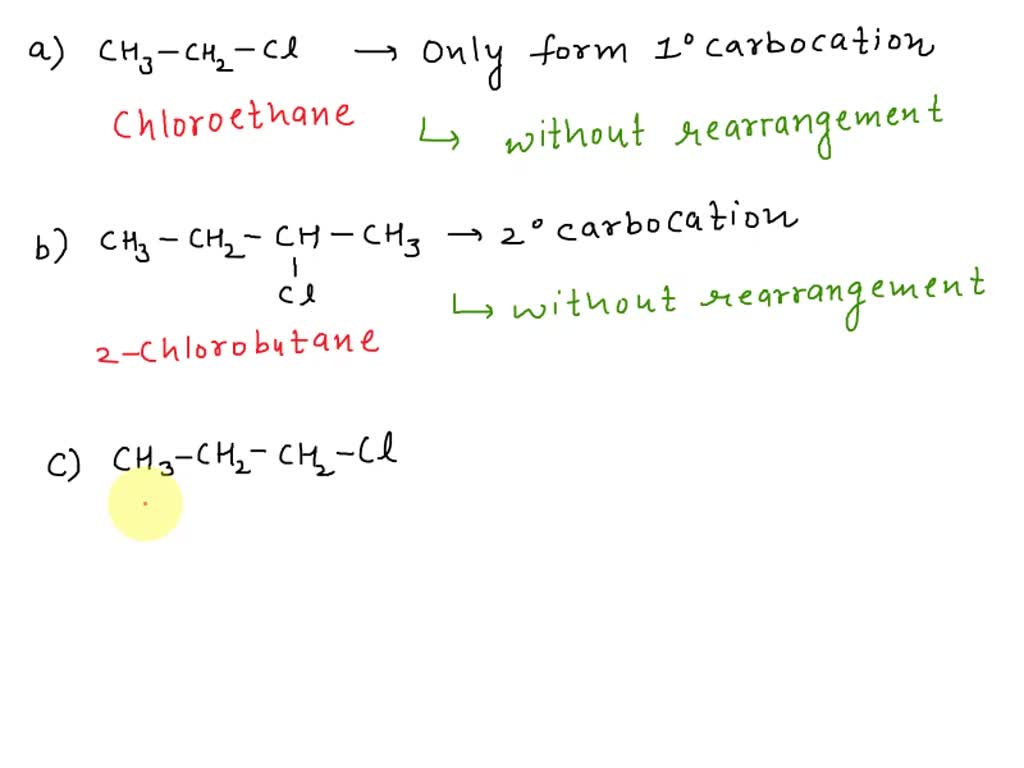 a) CH₃–CH₂–Cl → Only form 1° carbocation
Chloroethane ↳ without rearrangement
b) CH₃–CH₂–CH–CH₃ → 2° carbocation
|
Cl ↳ without rearrangement
2-Chlorobutane
c) CH₃–CH₂–CH₂–Cl